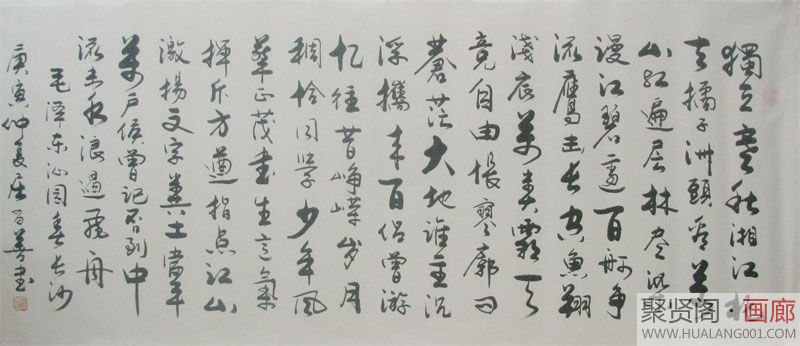 獨立寒秋湘江北
去橘子洲頭看万
山红遍层林尽染
漫江碧透百舸争
流鹰击长空魚翔
浅底萬类霜天
竞自由怅寥廓问
蒼茫大地谁主沉
浮攜来百侣曾游
忆往昔峥嵘岁月
稠恰同学少年风
華正茂書生意氣
揮斥方遒指点江山
激揚文字糞土當年
萬户侯曾記否到中
流击水浪遏飛舟
毛泽东沁园春长沙
庚寅仲夏 書
聚贤阁·画廊
WWW.HUALANG001.COM